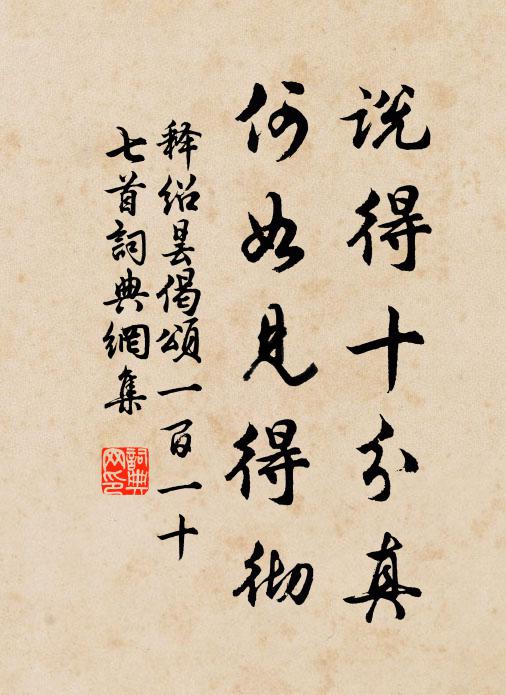 说得十分真
何如见得彻
释绍昙偈颂一百一十
七首詞典網集
詞典
网印